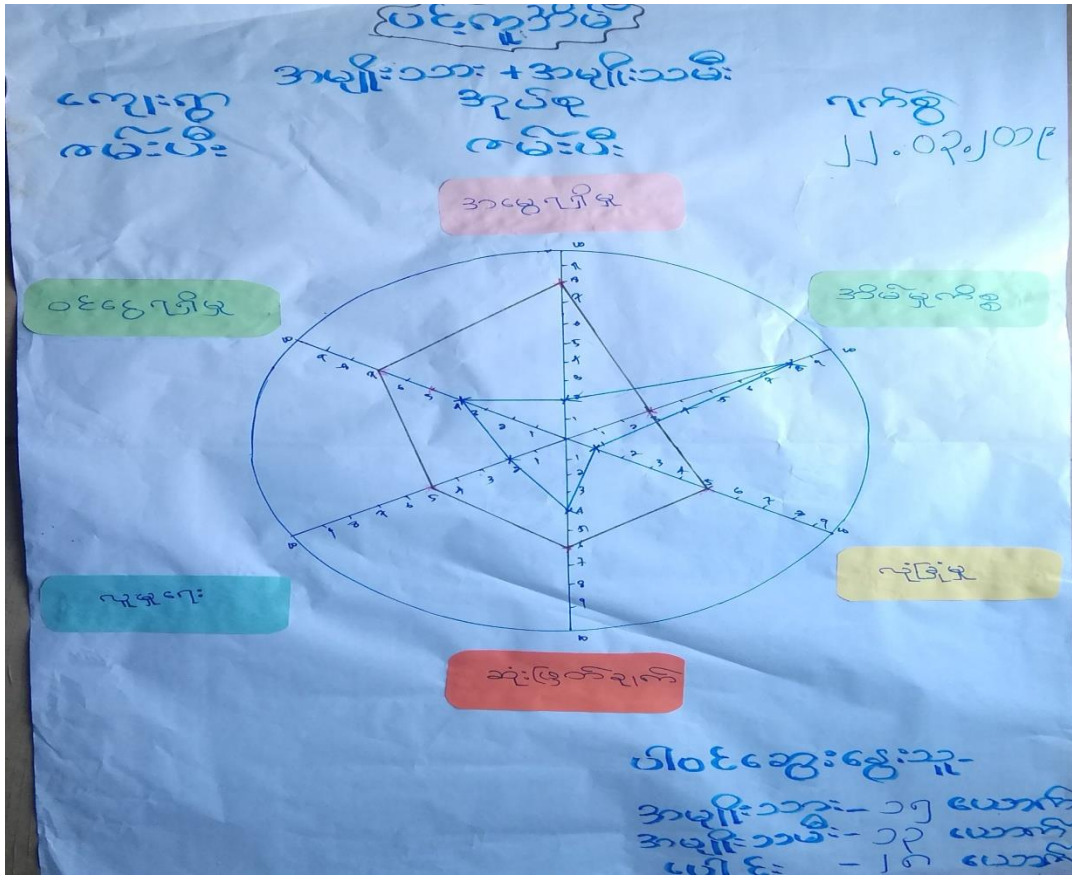 ပင့်ကူအိမ်
အမျိုးသား + အမျိုးသမီး
ကျေးရွာ အုပ်စု ရက်စွဲ
ဇမ်းပီး ဇမ်းပီး ၂၂.၀၃.၂၀၁၉
အမွေရရှိမှု
ဝင်ငွေရရှိမှု
အိမ်မှုကိစ္စ
လုံခြုံမှု
လူမှုရေး
ဆုံးဖြတ်ချက်
ပါဝင်ဆွေးနွေးသူ-
အမျိုးသား - ၁၅ ယောက်
အမျိုးသမီး - ၁၃ ယောက်
ပေါင်း - ၂၈ ယောက်